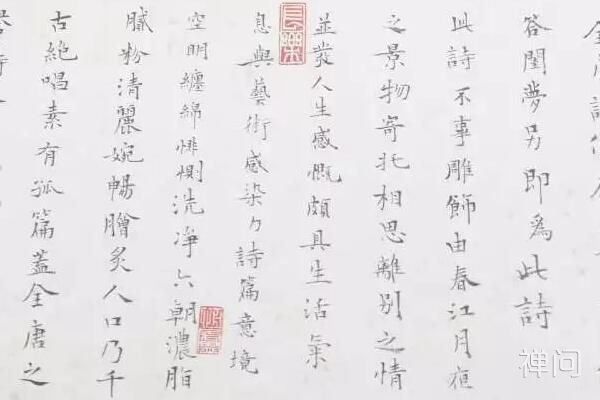 答閨夢另即爲此詩
此詩不事雕飾由春江月夜
之景物寄托相思離别之情
並發人生感慨頗具生活氣
息與藝術感染力詩篇意境
空明纏綿悱惻洗净六朝濃脂
膩粉清麗婉暢膾炙人口乃千
古絶唱素有孤篇蓋全唐之
長樂
禅问